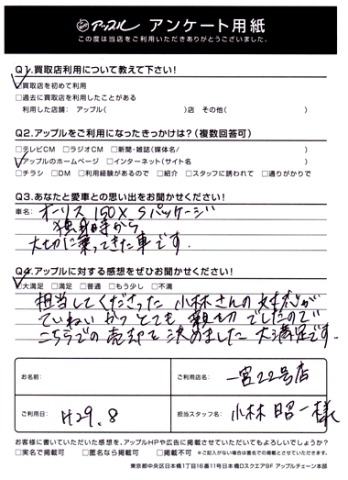 アップル アンケート用紙
この度は当店をご利用いただきありがとうございました。
Q1.買取店利用について教えて下さい!
□買取店を初めて利用
□過去に買取店を利用したことがある
利用した店舗: アップル( )店 その他( )
Q2.アップルをご利用になったきっかけは?(複数回答可)
□テレビCM □ラジオCM □新聞・雑誌(媒体名/ )
□アップルのホームページ □インターネット(サイト名 )
□チラシ □DM □利用経験があるので □紹介 □スタッフに誘われて □通りがかりで
Q3.あなたと愛車との思い出をお聞かせください!
車名: オーリス 150X Sパッケージ
独身時から
大切に乗ってきた車です。
Q4.アップルに対する感想をぜひお聞かせください!
□大満足 □満足 □普通 □もう少し □不満
担当してくださった 小林さんの対応が
ていねいかつ とても 親切 でしたので
こちらでの 売却を 決めました 大満足です。
お名前:
ご利用店名: 一宮22号店
ご利用日: H29.8
担当スタッフ名: 小林 昭一様
お客様に書いていただいた感想を、アップルHPや広告に掲載させていただいてもよろしいでしょうか?
□実名で掲載可 □匿名なら掲載可 □掲載不可 (※ご記入がない場合は匿名での掲載とさせていただきます。)
東京都中央区日本橋1丁目16番11号日本橋Dスクエア8F アップルチェーン本部